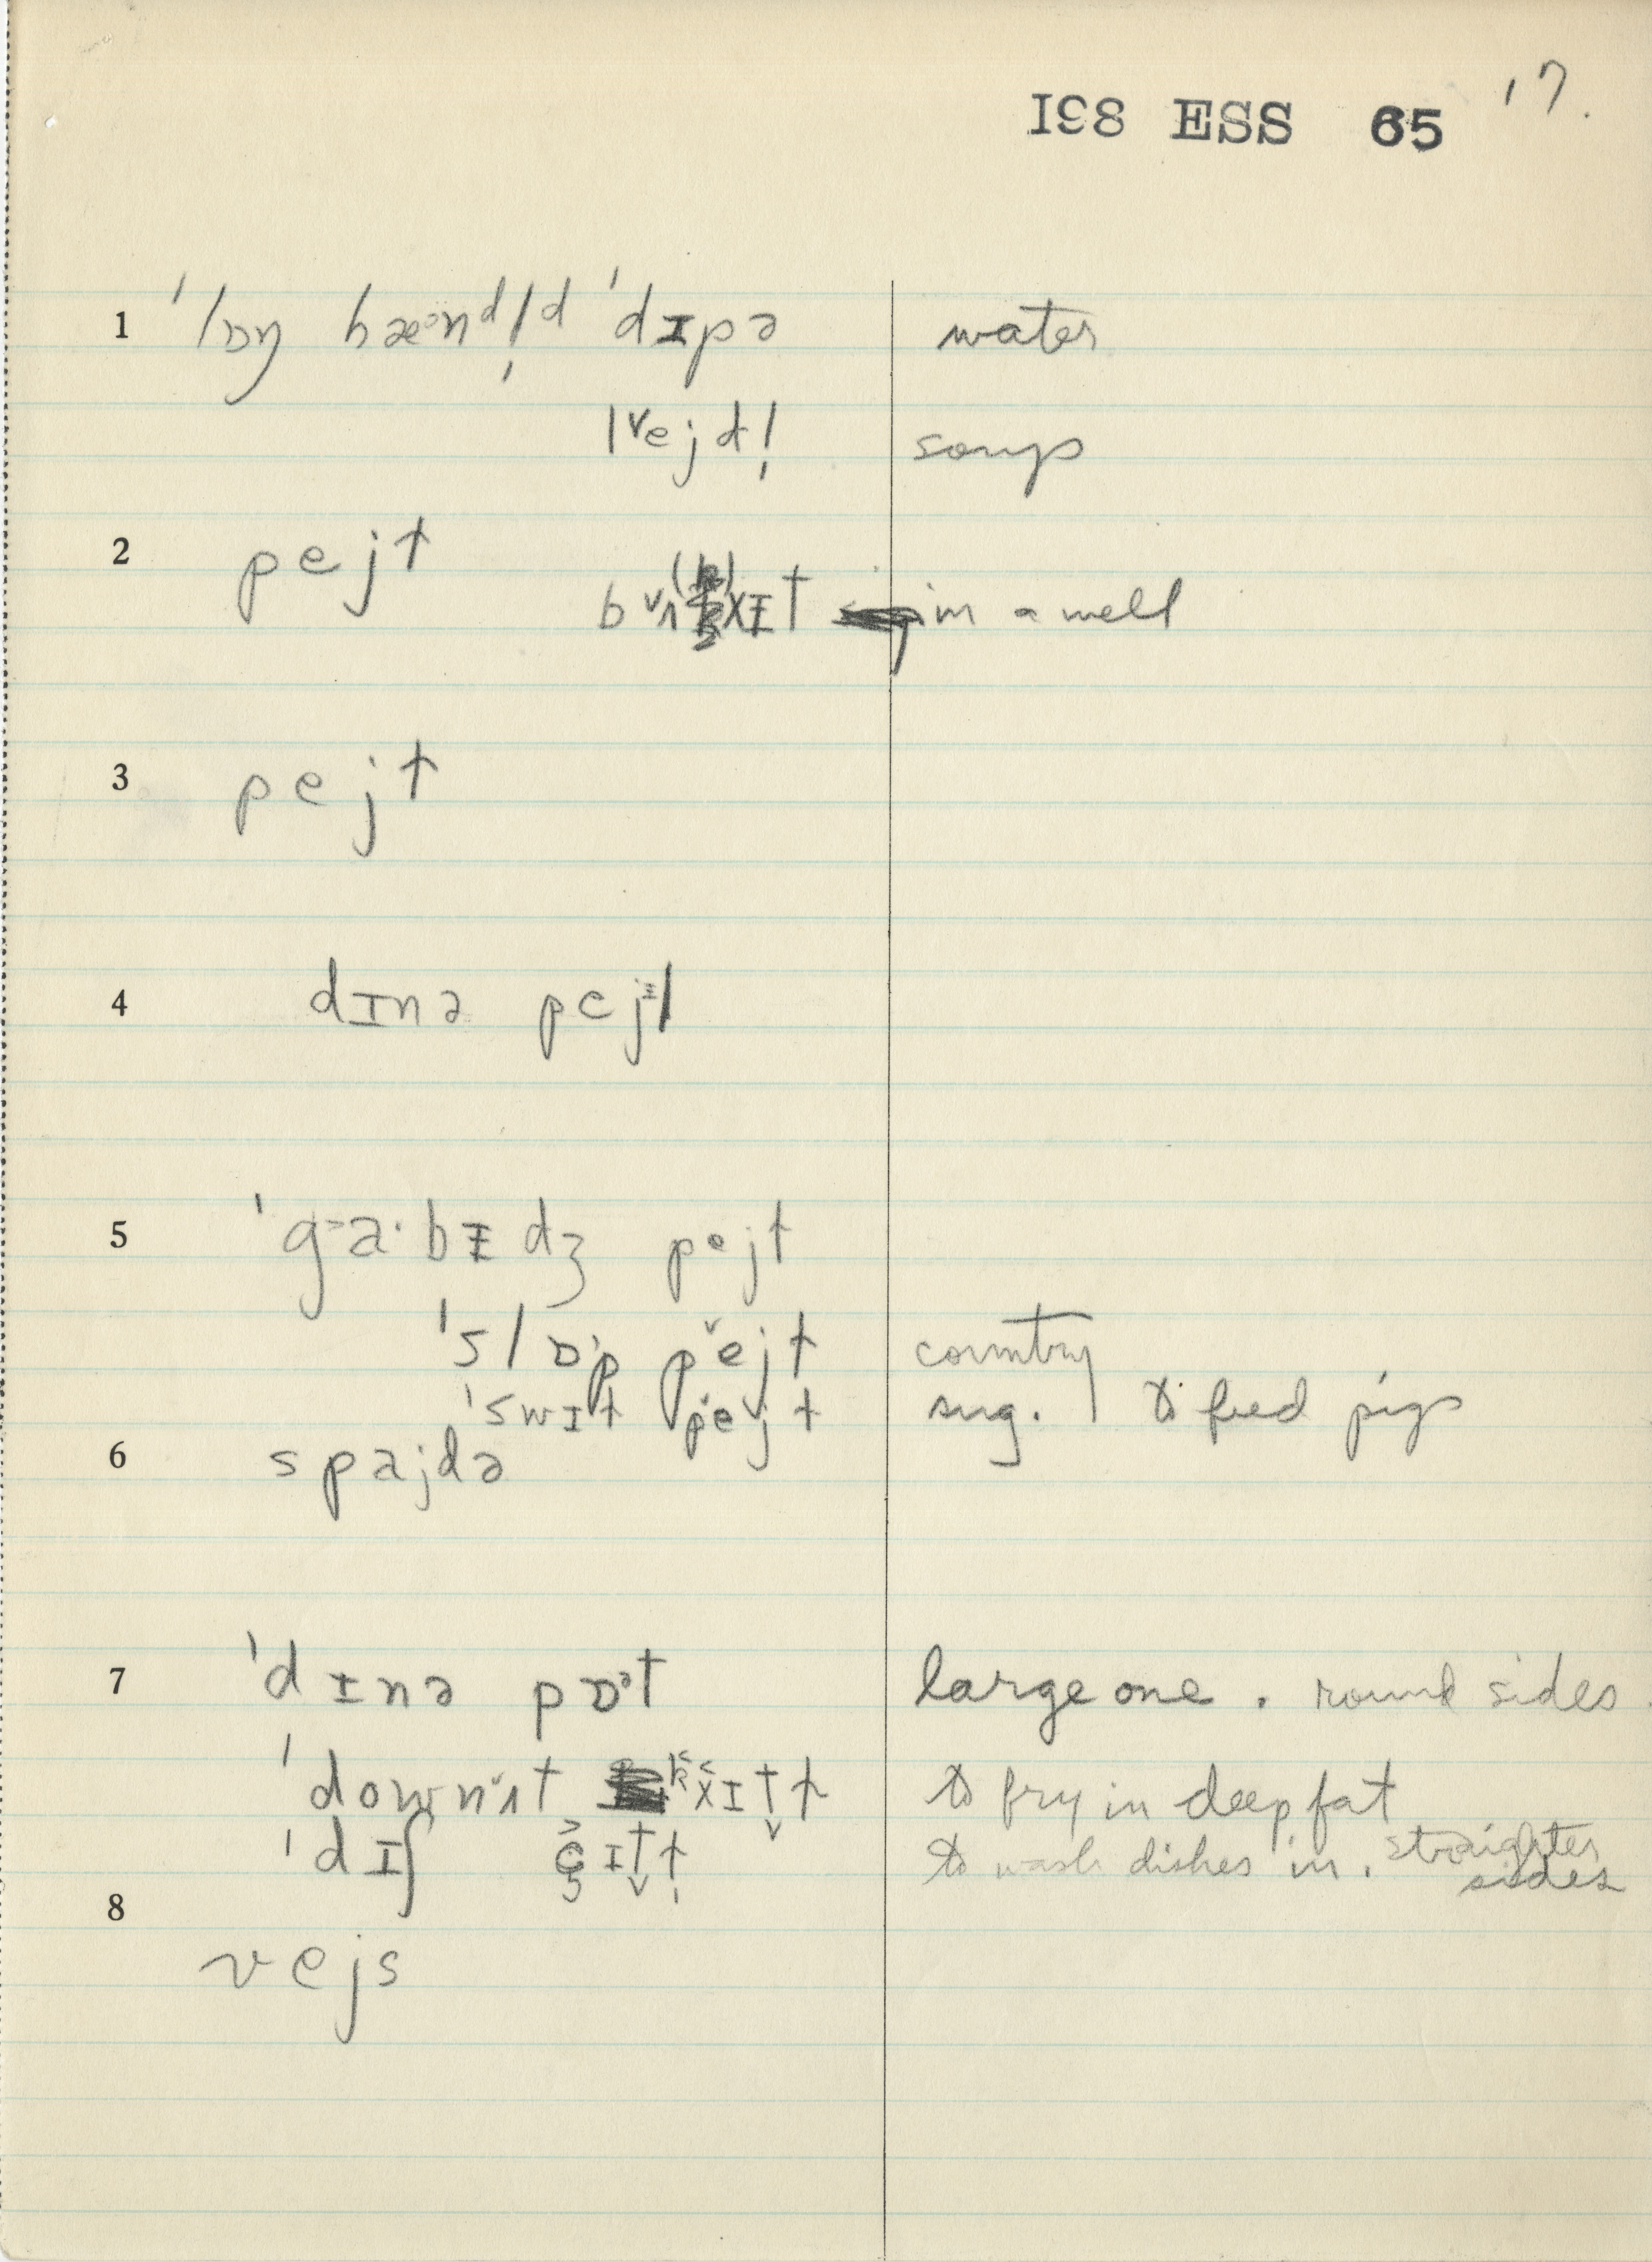 198 ESS 65 17.
1 ˈlɒŋ hæᵊndl̩d ˈdɪpə water
lejdl̩ soup
2 pejt
bʌxɪt in a well
3 pejt
4 dɪnə pejl
5 ˈgaˑbɪdʒ pejt
ˈslɒp pejt country
ˈswɪt pejt sug. to feed pigs
6 spajdə
7 ˈdɪnə pɒᵊt large one. round sides.
ˈdownʌt kxɪtt to fry in deep fat
ˈdɪʃ to wash dishes in. straighter
sides
8
vejs